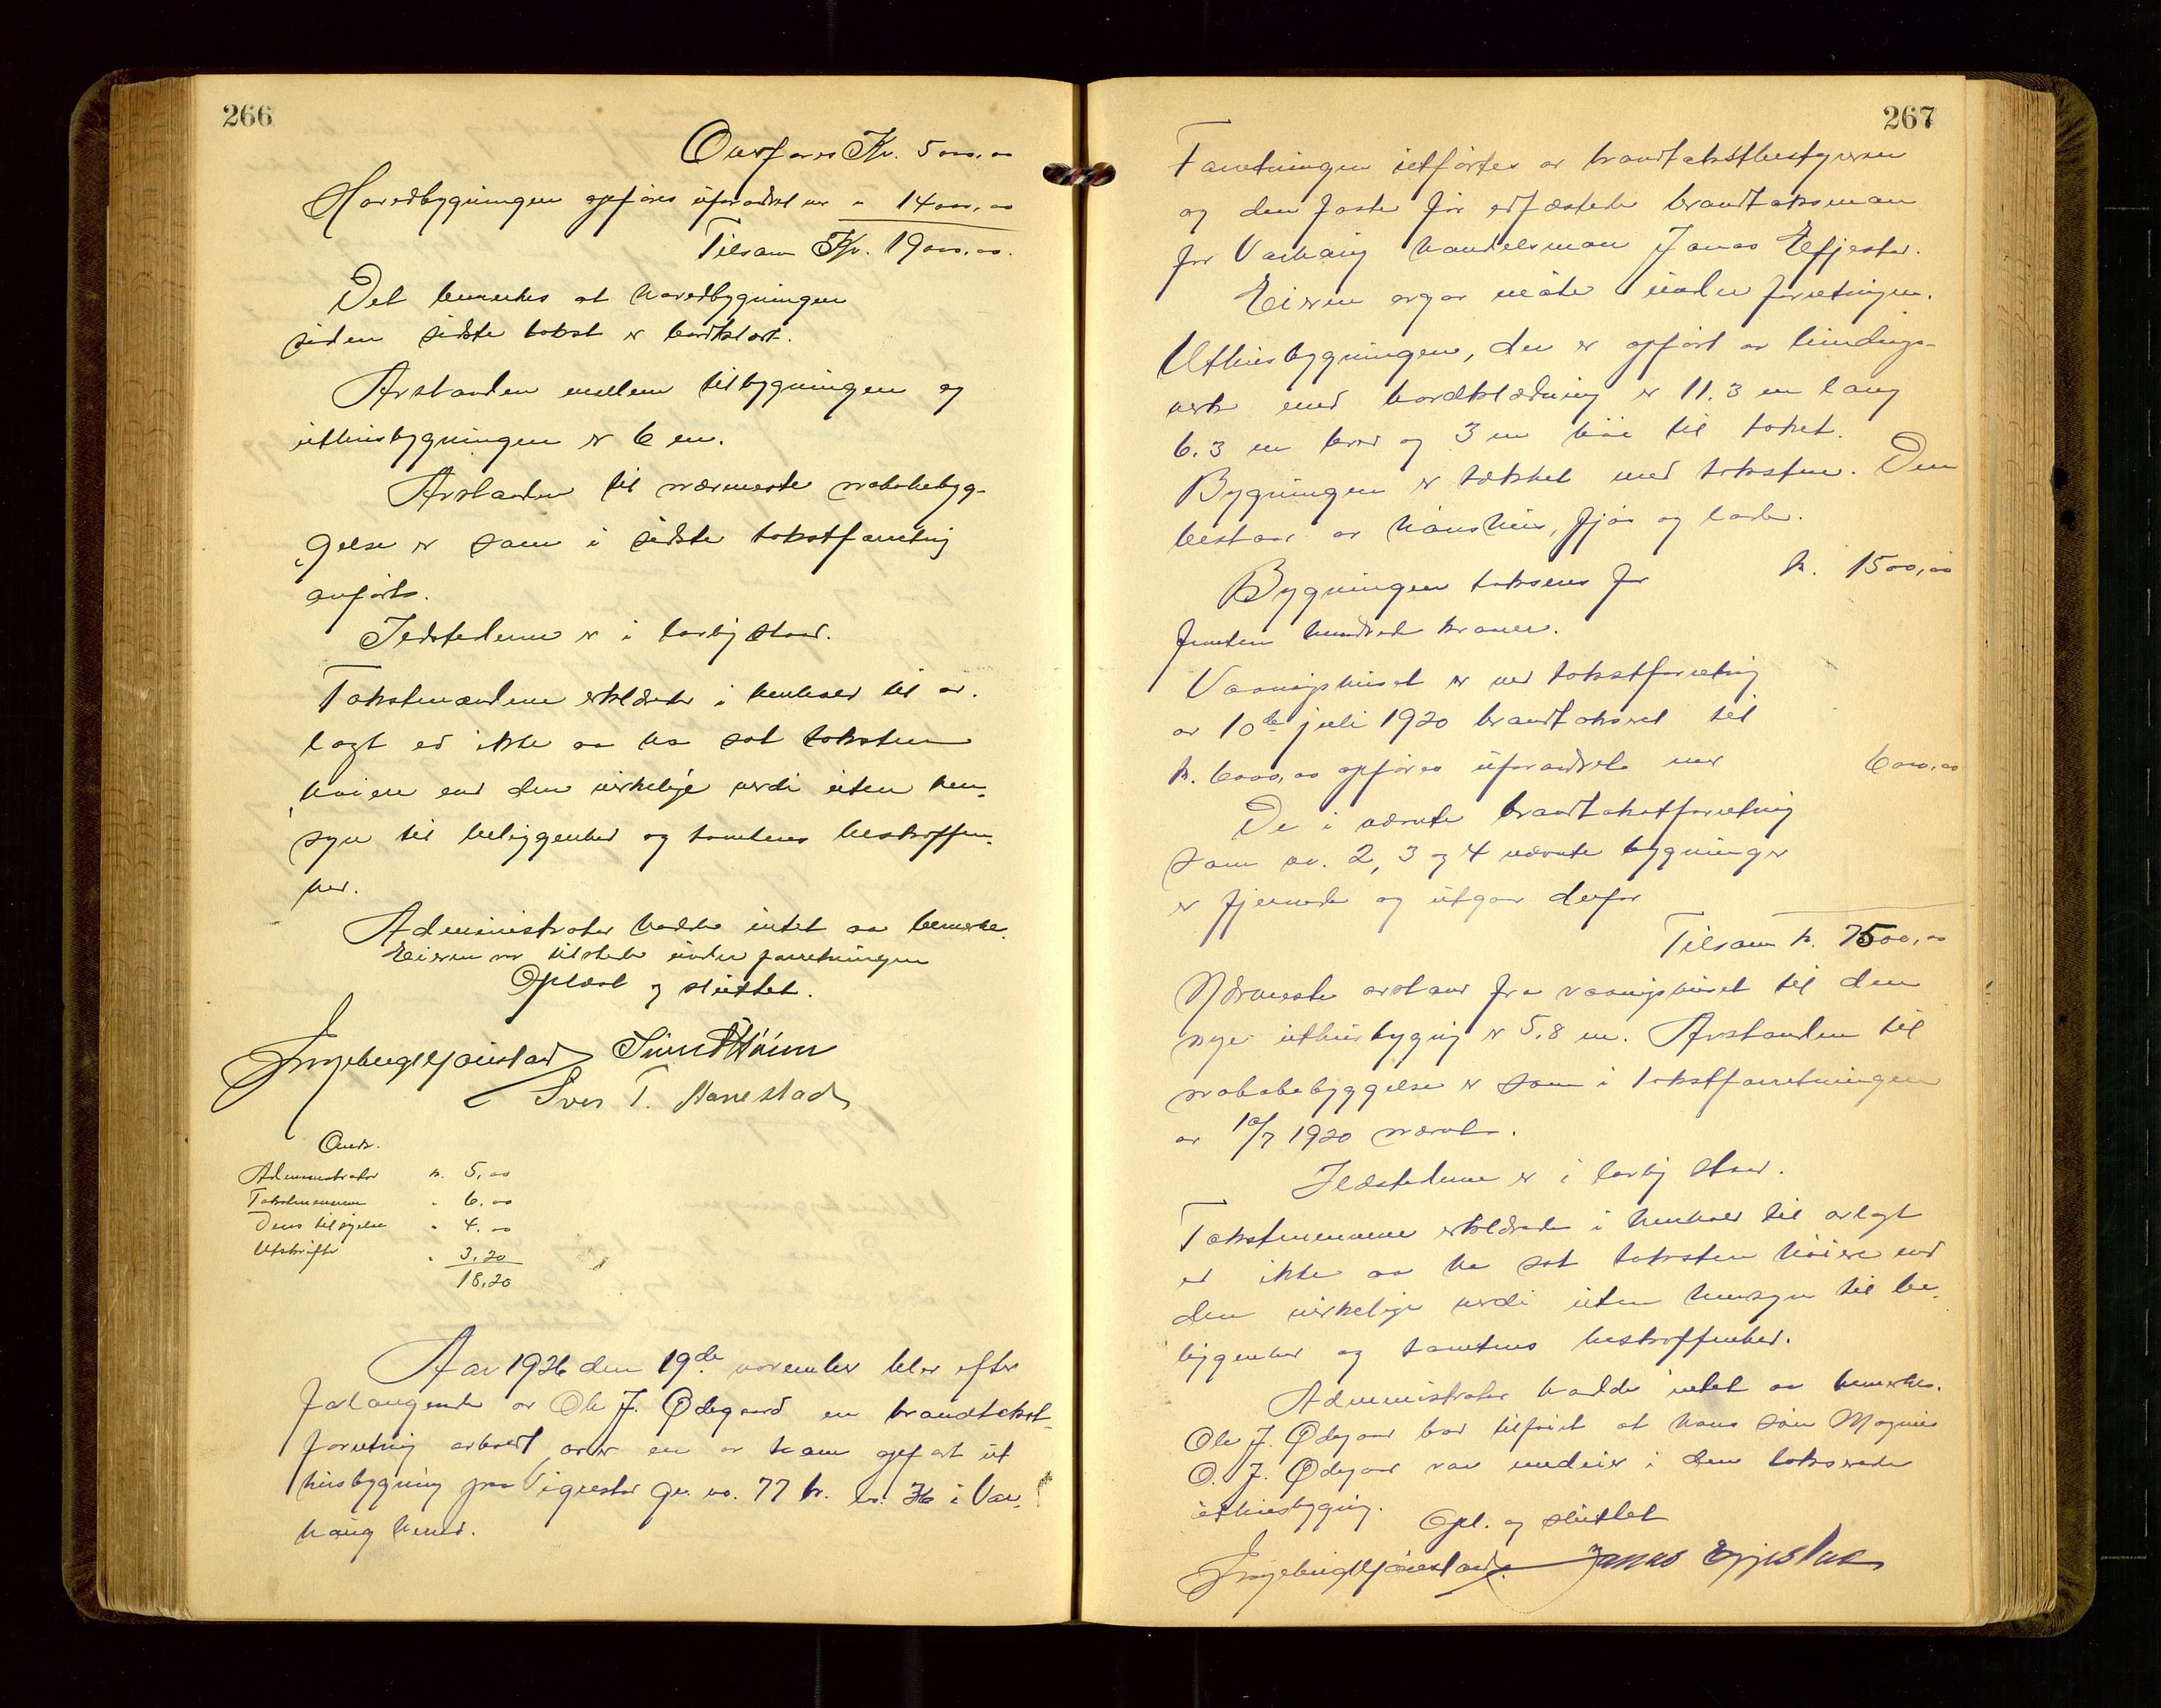 266
Overføres Kr. 5000,00
Hovedbygningen opføres uforandret m " 14000,00
Tilsam Kr. 19000,00.
Det bemerkes at hovedbygningen
siden sidste takst er bordklædt.
Avstanden mellem tilbygningen og
uthusbygningen er 6 m.
Avstanden til nærmeste nabobebyg-
gelse er som i sidste takstforretning
anført.
Ildstederne er i lovlig stand.
Takstmændene erklærte i henhold til av-
lagt ed ikke aa ha sat taksten
høiere end den virkelige verdi uten hen-
syn til beliggenhed og tomtens beskaffen-
hed.
Administrator hadde intet aa bemerke.
Eieren var tilstede under forretningen
Oplæst og sluttet.
Sven T. Harestad
Omk.
Administrator kr. 5,00
Takstmennene " 6.00
Deres tilsigelse " 4.00
Utskrifte " 3.20
18,20
Aar 1926 den 19de november blev efter
forlangende av Ole J. Ødegaard en brandtakst-
forretning avholdt over en av ham opført ut
husbygning paa Vigrestad gr. no. 77 br. no. 36 i Var-
haug herred.
267
Forretningen utførtes av brandtakstbestyreren
og den faste før edfæstede brandtaksman
for Varhaug handelsman Jonas Efjestad.
Eieren avgav møte under forretningen.
Uthusbygningen, der er opført av bindings-
verk med bordklædning er 11.3 m lang
6.3 m bred og 3 m høi til taket.
Bygningen er tækket med taksten. Den
bestaar av hønshus, fjøs og lade.
Bygningen takseres for kr. 1500,00
femten hundrede kroner.
Vaaningshuset er ved takstforretning
av 10de juli 1920 brandtaksert til
kr. 6000,00 opføres uforandret med 6000,00
De i nævnte brandtakstforretning
som no. 2, 3 og 4 nævnte bygninger
er fjernede og utgaar derfor
Tilsam kr. 7500,00
Nærmeste avstand fra vaaningshuset til den
nye uthusbygnig er 5.8 m. Avstanden til
nabobebyggelse er som i takstforretningen
av 10/7 1920 nævnt.
Ildstederne er i lovlig stand.
Takstmennene erklærede i henhold til avlagt
ed ikke aa ha sat taksten høiere end
den virkelige verdi uten hensyn til be-
liggenhed og tomtens beskaffenhed.
Administrator hadde intet aa bemerke.
Ole J. Ødegaard bad tilføiet at hans søn Magnus
O. J. Ødegaard var medeier i den takserede
uthusbygnig.
Opl. og sluttet
Jonas Efjestad